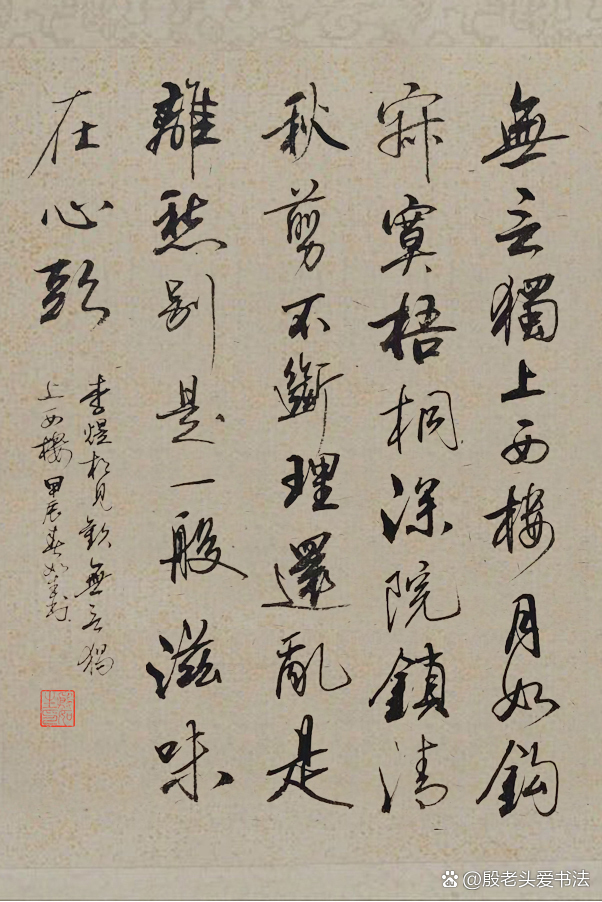 無言獨上西樓月如鈎
寂寞梧桐深院鎖清
秋剪不斷理還亂是
離愁別是一般滋味
在心頭
李煜相見歡無言獨
上西樓甲辰春如
@殷老头爱书法